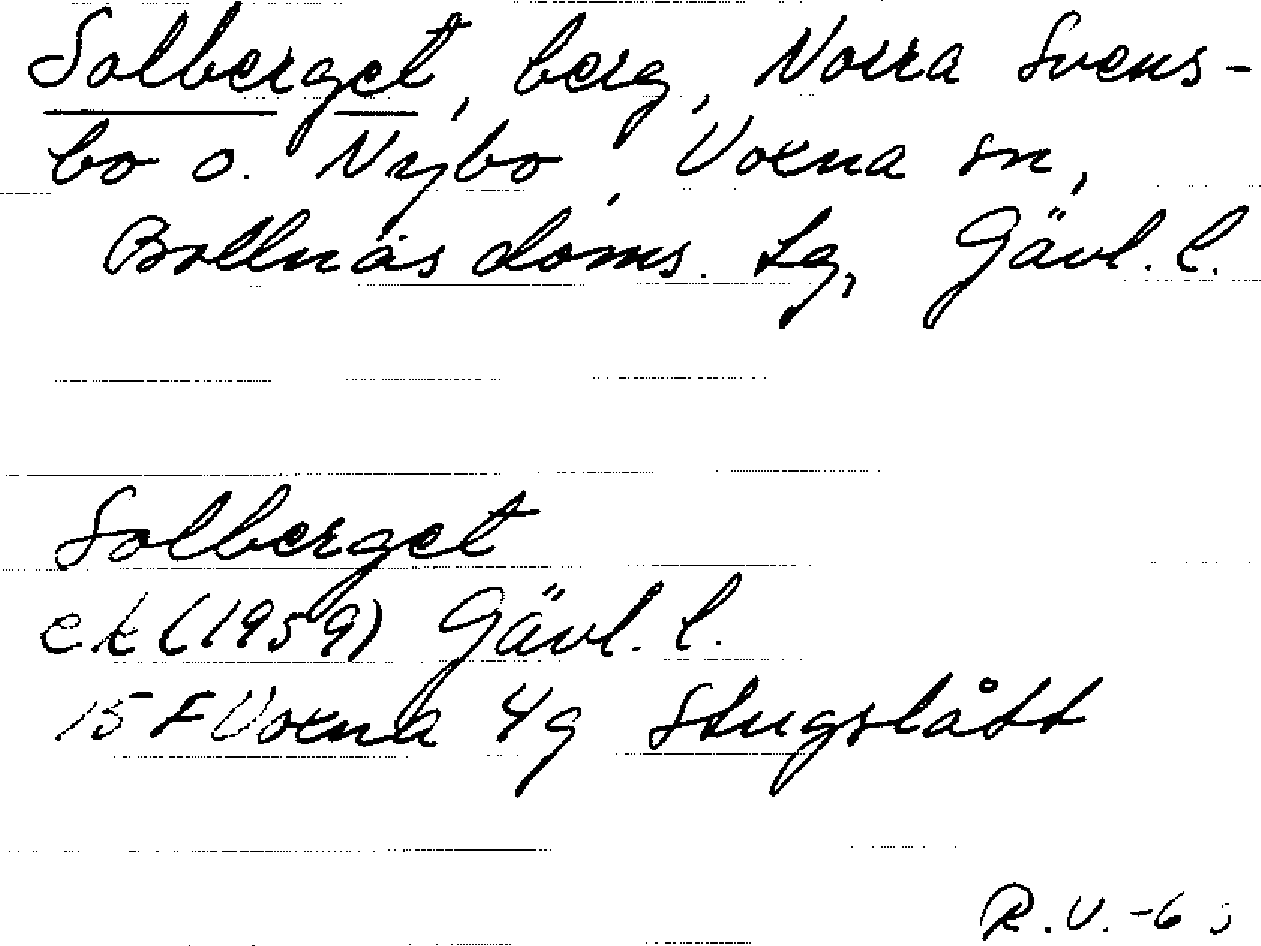 Solberget, berg, Norra Svens-
bo o. Nybo, Voxna sn,
Bollnäs doms. lg, Gävl. l.
Solberget
ek (1959) Gävl. l.
15 F Voxna 4g Stugslått
R.V. -6